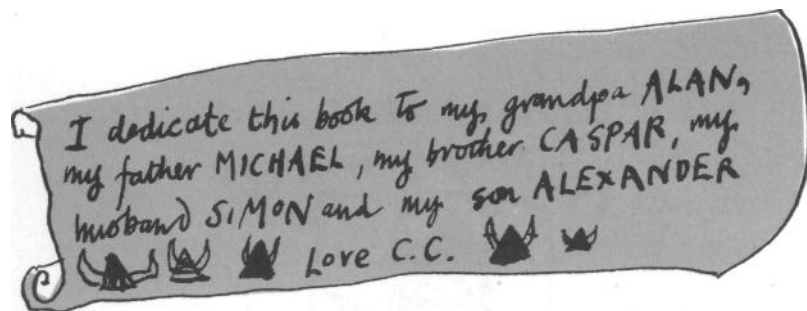 I dedicate this book to my grandpa ALAN,
my father MICHAEL, my brother CASPAR, my
husband SIMON and my son ALEXANDER
Love C.C.